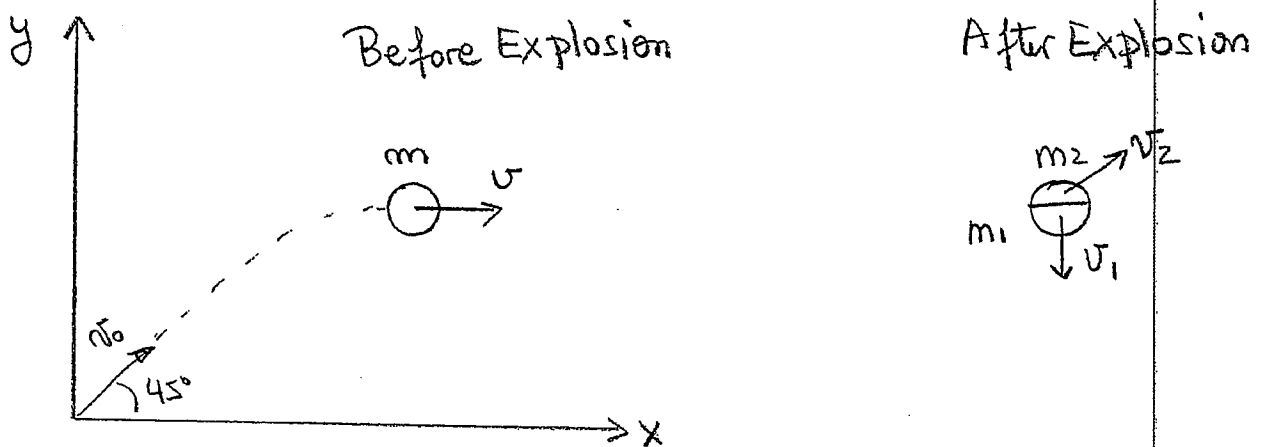 y
Before Explosion
After Explosion
m
v
m2
v2
m1
v1
v0
45°
x